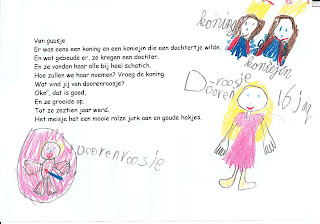 Van guusje
Er was eens een koning en een koniejn die een dochtertje wilde.
En wat gebeude er, ze kregen een dochter.
En ze vonden haar alle bij heel schatich.
Hoe zullen we haar noemen? Vroeg de koning.
Wat vind jij van doorenroosje?
Oke", dat is goed,
En ze groeide op.
Tot ze zeztien jaar werd.
Het meisje hat een mooie rolze jurk aan en goude hakjes.
koning
koniejn
Dooren-roosje
16 jaa
Doorenroosje